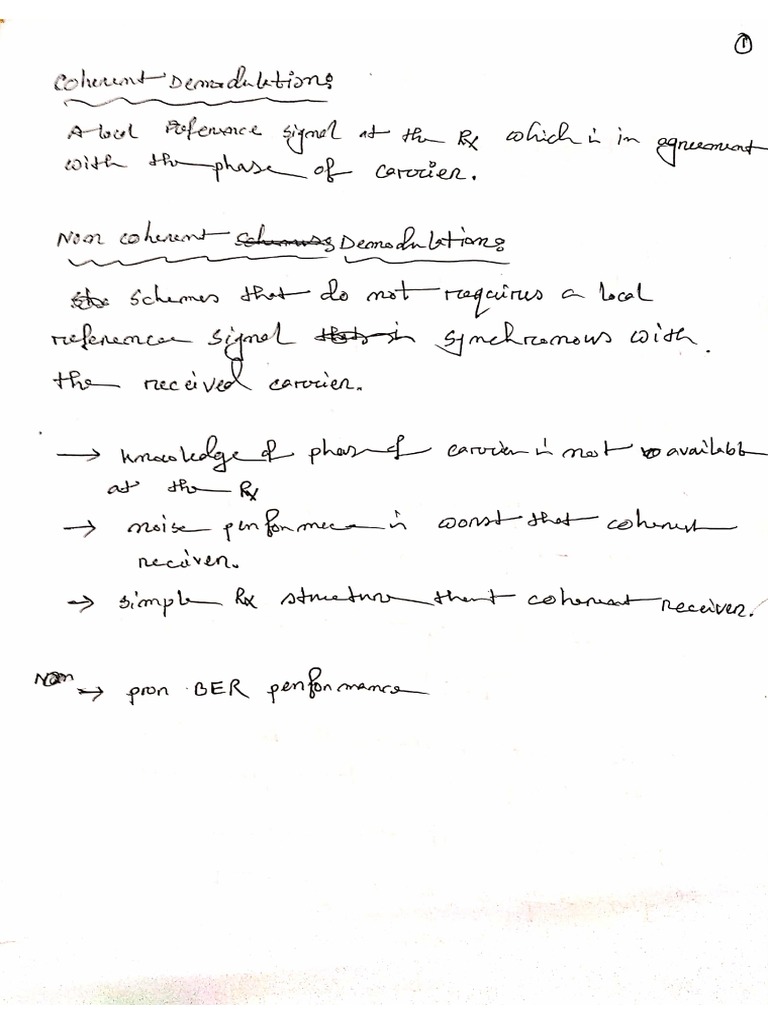 1
Coherent Demodulation:
A local reference signal at the Rx which is in agreement
with the phase of carrier.
Non coherent Demodulation:
schemes that do not requires a local
reference signal synchronous with
the received carrier.
→ knowledge of phase of carrier is not available
at the Rx
→ noise performance is worst that coherent
receiver.
→ simple Rx structure that coherent receiver.
Non → poor BER performance